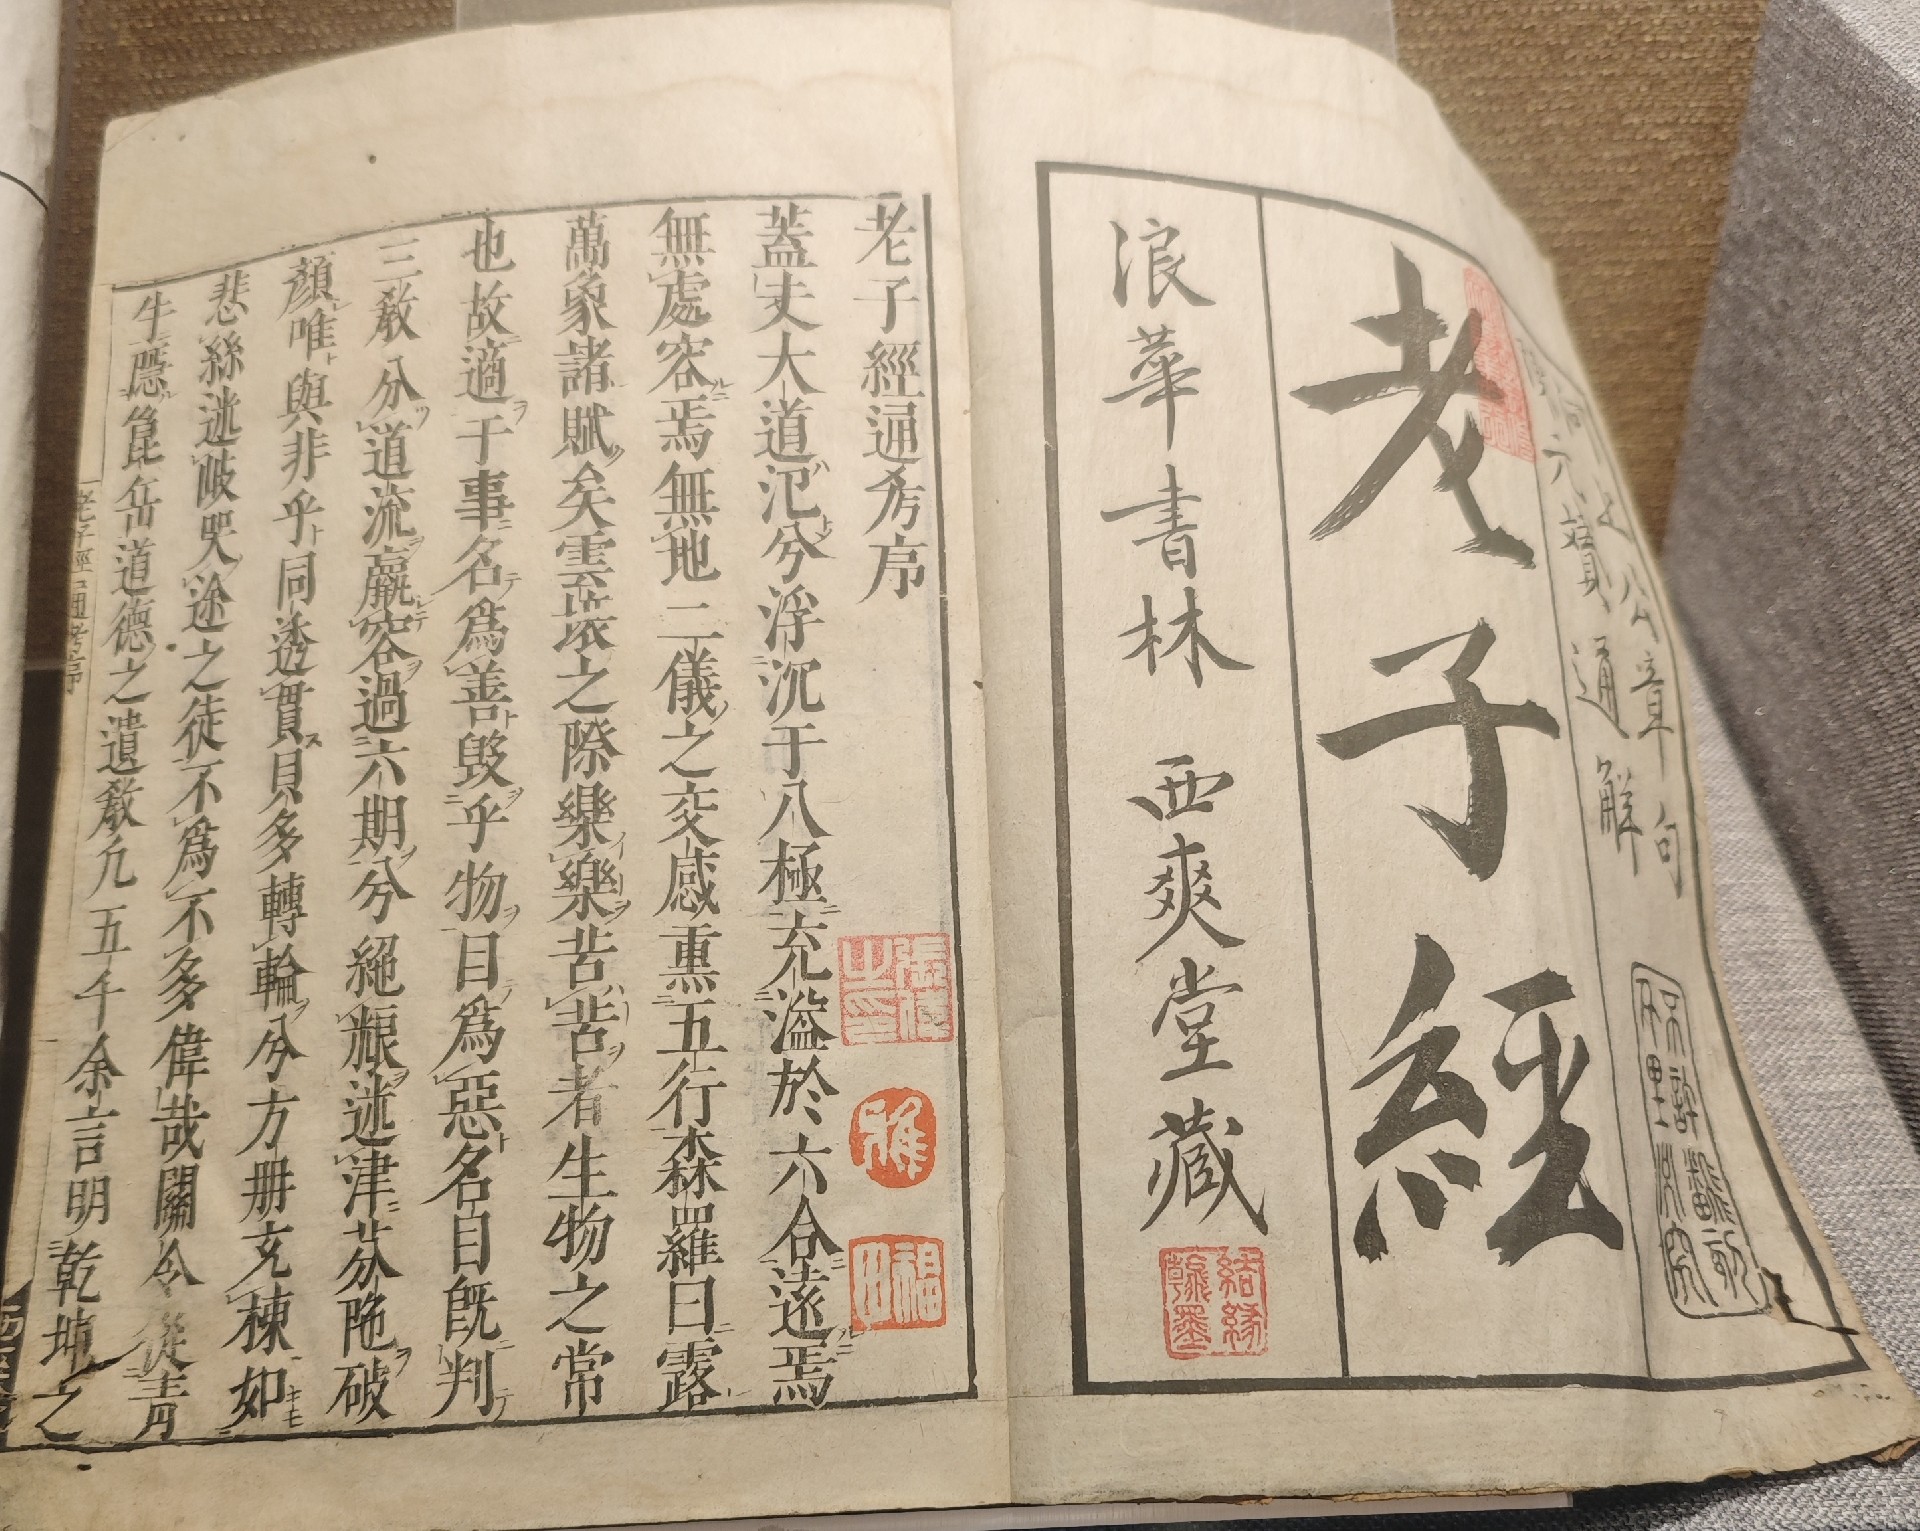 河上公章句
元贇通解
老子經
浪華書林 西爽堂藏
結緣
翰墨
不許翻刻
千里必究
老子經通考序
蓋夫大道氾兮浮沉于八極充溢於六合遠焉
無處容焉無地二儀之交感熏五行森羅曰露
萬象諸賦矣雲孩之際樂樂苦苦者生物之常
也故適于事名爲善毀乎物目爲惡名自旣判
三敎分道流羸容過六期兮絕粮迷津芬陁破
顏唯與非乎同透貫貝多轉輪兮方册充棟如
悲絲迷岐哭途之徒不爲不多偉哉關令從青
牛應崑岳道德之遺敎凢五千余言明乾坤之
雅
福田
老子經通考序